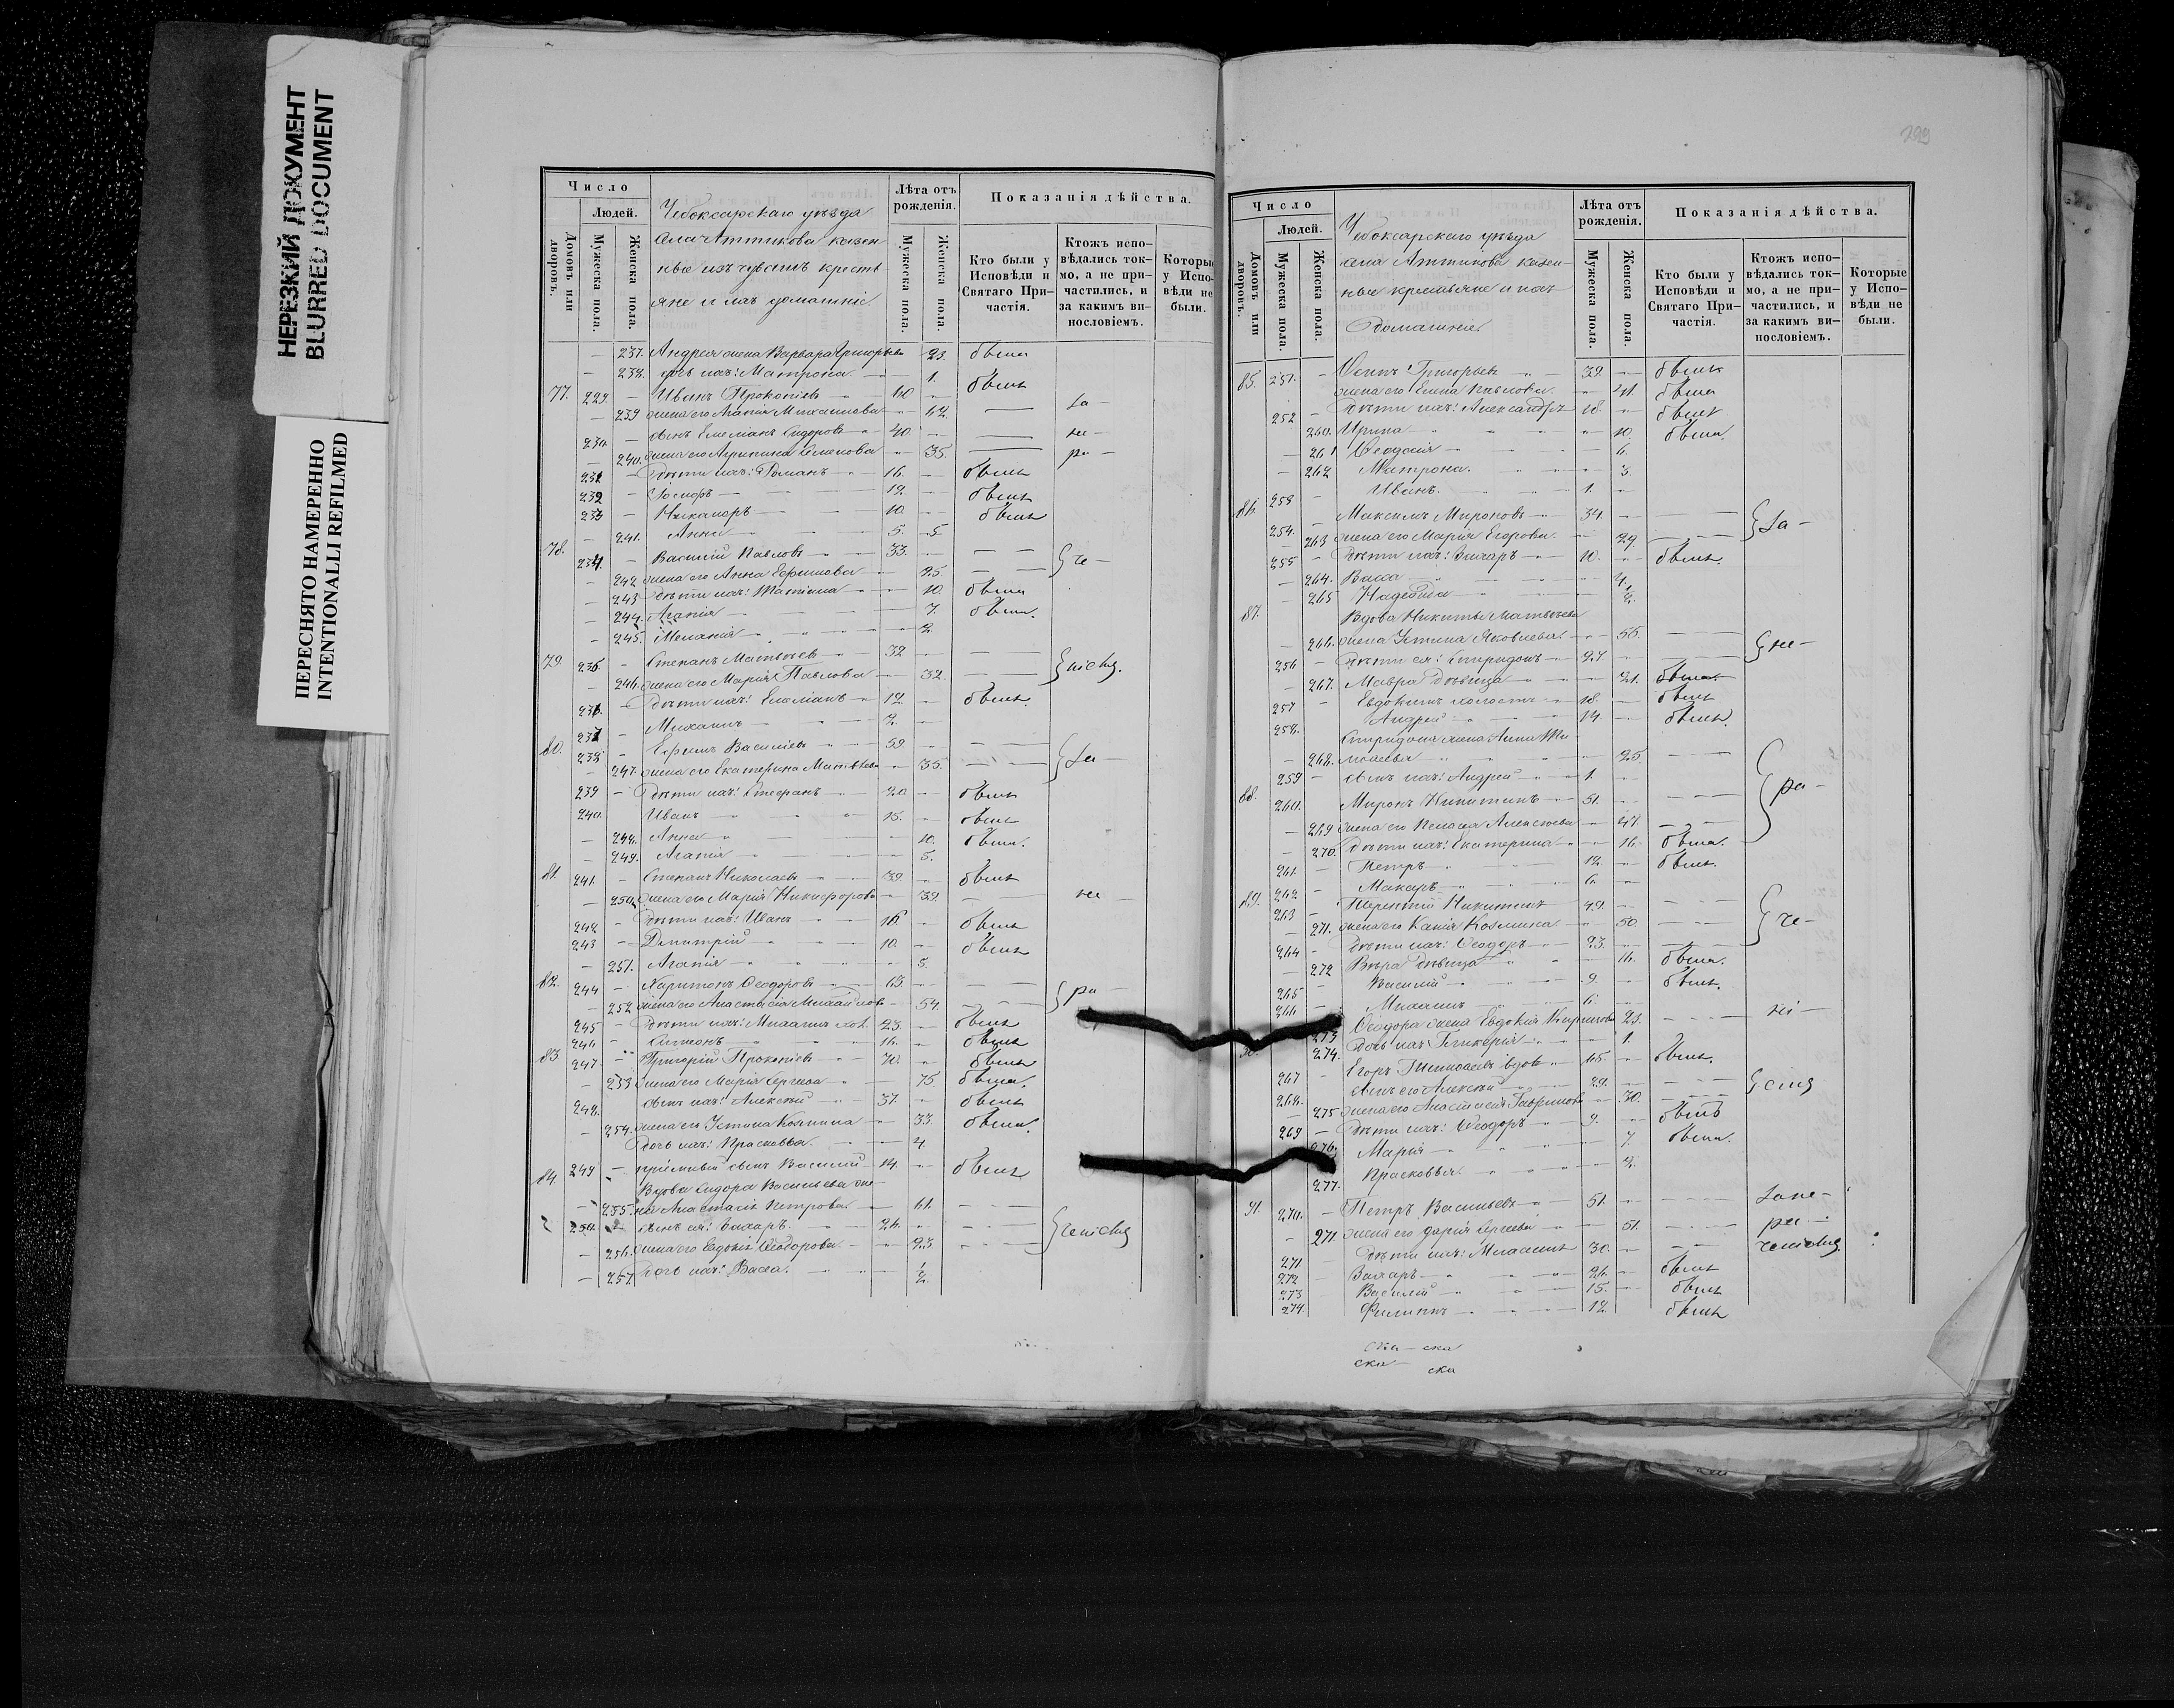 НЕРЕЗКИЙ ДОКУМЕНТ
BLURRED DOCUMENT
ПЕРЕСНЯТО НАМЕРЕННО
INTENTIONALLI REFILMED
Число
Людей.
Домовъ или дворовъ.
Мужеска пола.
Женска пола.
Чебоксарскаго уѣзда
села Аттикова казен
ные изъ чувашъ кресть
яне и ихъ домашніе.
Лѣта отъ рожденія.
Мужеска пола.
Женска пола.
Показанія дѣйства.
Кто были у Исповѣди и Святаго Причастія.
Ктожъ исповѣдались токмо, а не причастились, и за какимъ винословіемъ.
Которые у Исповѣди не были.
— 237. Андрея жена Варвара Григорьева 23. была
— 238. дочь ихъ: Матрона — 1.
77. 229. — Иванъ Прокопіевъ — были
— 239 жена его Агапія Михаилова — 62. — за —
— сынъ Емеліанъ Сидоровъ — 40 —
— 240. жена его Агрипина Семенова — 35. —
231 — Дѣти ихъ: Романъ — 16. — былъ
232 — 12. — былъ
233 — Никаноръ — 10. — былъ
— 241. Анна — 5.
78. 234. — Василій Павловъ — 33. —
— 242 жена его Анна Ефимова — 25. —
— 243 Дѣти ихъ: Татіана — 10. была
— 244. Агапія — 7. была.
— 245. Меланія — 2
79. 235 — Степанъ Матвѣевъ — 32 —
— 246. жена его Марія Павлова — 32. —
236. — Дѣти ихъ: Емеліанъ — 12. — былъ.
237 — Михаилъ — 2. —
80. 238 — Ефимъ Василіевъ — 59. —
— 247. жена его Екатерина Матвѣева — 35. —
239 — Дѣти ихъ: Стефанъ — 20 — былъ
240. Иванъ — 15. — былъ
— 248. Анна — 10. была.
— 249. Агапія — 5.
81. 241. — Степанъ Николаевъ — 39. — былъ
— 250. жена его Марія Никифорова — 39. —
242 — Дѣти ихъ: Иванъ — 16. — былъ
243 — Димитрій — 10. — былъ
— 251. Агапія — 5.
82. 244 — Харитонъ Ѳеодоровъ — 63. —
— 252 жена его Анастасія Михайлова — 54. —
245 — Дѣти ихъ: Михаилъ хол. 23. — былъ
246 — Симеонъ — 16. — былъ
83 247 — Григорій Прокопіевъ — 70. — былъ
— 253 жена его Марія Сергеева — 75. была.
248. сынъ ихъ: Алексѣй — 37. — былъ
— 254. жена его Устина Козмина — 33. была.
Дочь ихъ: Прасковья. — 4
249 — пріемный сынъ Василій — 14. — былъ
84. Вдова Сидора Васильева же
— 255. на Анастасія Петрова. — 61. —
250. сынъ ея: Захаръ. — 24. —
— 256. жена его Евдокія Ѳеодорова — 23 —
— 257. дочь ихъ: Васса. — ½.
299
Число
Людей.
Домовъ или дворовъ.
Мужеска пола.
Женска пола.
Чебоксарскаго уѣзда
села Аттикова казен
ные крестьяне и ихъ
домашніе.
Лѣта отъ рожденія.
Мужеска пола.
Женска пола.
Показанія дѣйства.
Кто были у Исповѣди и Святаго Причастія.
Ктожъ исповѣдались токмо, а не причастились, и за какимъ винословіемъ.
Которые у Исповѣди не были.
85. 251. — Осипъ Григорьевъ — 39. — былъ
жена его Елена Павлова — 41. была
252 — Дѣти ихъ: Александръ 18. — былъ
260. Ирина — 10. была.
— 261 Ѳеодосія — 6.
— 262 Матрона. — 3.
253 — Иванъ. — 1. —
86. — Максимъ Мироновъ — 34. — за —
254. — 263 жена его Марія Егорова. — 29. —
255 — Дѣти ихъ: Захаръ — 10. — былъ.
— 264. Васса — 4.
— 265 Надежда — ½.
87. Вдова Никиты Матвѣева
— 266. жена Устина Яковлева. — 56. —
256 — Дѣти ея: Спиридонъ — 27 —
— 267. Мавра Дѣвица — 21. была
257 — Евдокимъ холостъ — 18. — былъ
258. Андрей — 14. — былъ.
Спиридона жена Анна Ти
— 268. моѳеева — 25. —
259 — сынъ ихъ: Андрей — 1. —
88. 260. Миронъ Никитинъ — 51. —
— 269 жена его Пелагея Алексѣева — 47. —
— 270. Дѣти ихъ: Екатерина — 16. была.
261. — Петръ — 12. — былъ.
262 — Макаръ — 6. —
89. 263 — Терентій Никитинъ 49. —
— 271. жена его Ксенія Козмина — 50. —
264 — Дѣти ихъ: Ѳеодоръ — 23. —
— 272 Вѣра Дѣвица — 16. была.
265 — Василій — 9. — былъ.
266 — Михаилъ — 6. —
273 Ѳеодора жена Евдокія Кириллова 23. —
274. Дочь ихъ Гликерія — 1.
90. 267 — Егоръ вдовъ — 65. — былъ.
268. сынъ его Алексѣй — 29. —
— 275 жена его Анастасія Гаврилова — 30. —
269 — Дѣти ихъ: Ѳеодоръ — 9. — былъ
276. Марія — 7. была.
277. Прасковья. — 2.
91. 270. — Петръ Васильевъ — 51. —
— 271 жена его Дарія Сергеева — 51. —
271 Дѣти ихъ: 30. —
272 Захаръ — 26. — былъ
273 Василій — 15. — былъ
274. Филиппъ — 12. былъ